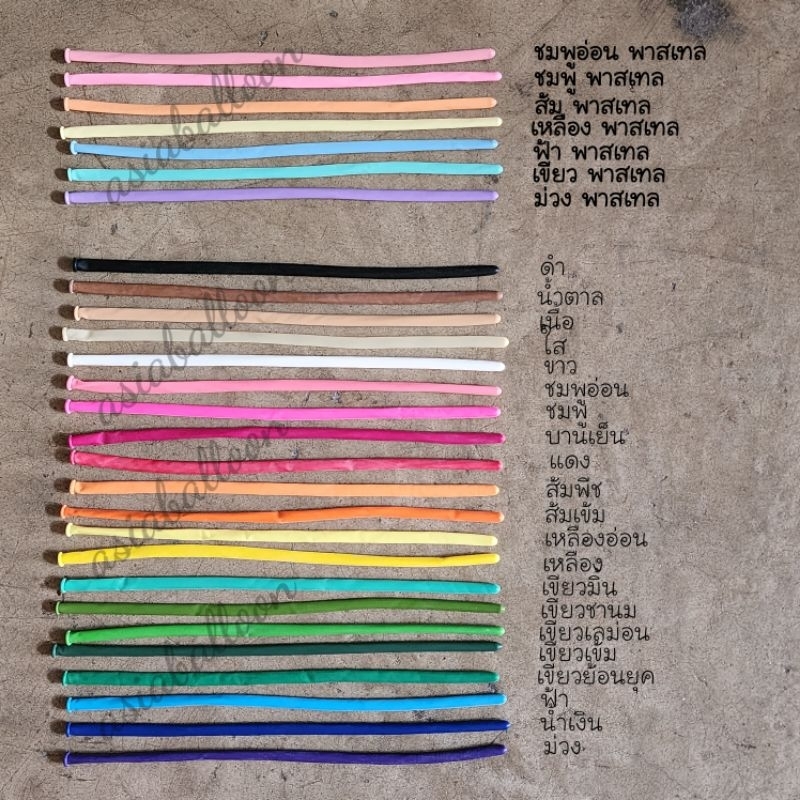 ชมพูอ่อน พาสเทล
ชมพู พาสเทล
ส้ม พาสเทล
เหลือง พาสเทล
ฟ้า พาสเทล
เขียว พาสเทล
ม่วง พาสเทล
ดำ
น้ำตาล
เนื้อ
ใส
ขาว
ชมพูอ่อน
ชมพู
บานเย็น
แดง
ส้มพีช
ส้มเข้ม
เหลืองอ่อน
เหลือง
เขียวมิ้น
เขียวชานม
เขียวเลม่อน
เขียวเข้ม
เขียวย้อนยุค
ฟ้า
น้ำเงิน
ม่วง
asiaballoon
asiaballoon
asiaballoon
asiaballoon